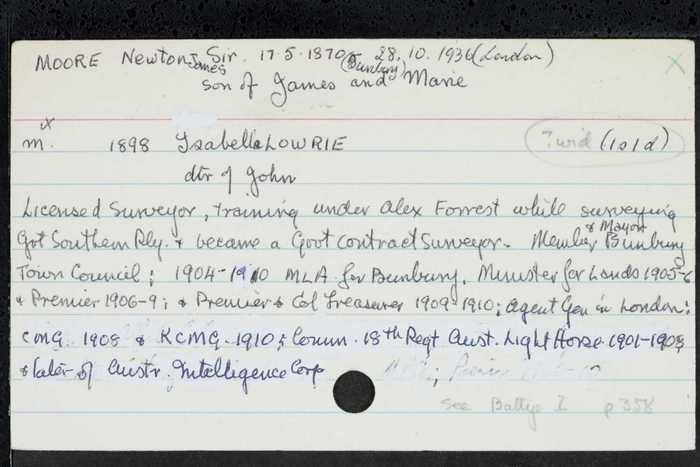 MOORE Newton James Sir. 17.5.1870 (Bunbury) - 28.10.1936 (London)
son of James and Marie
m. 1898 Isabella LOWRIE (1s 1d)
dtr of John
Licensed Surveyor, training under Alex Forrest while surveying
Gt Southern Rly. & became a Govt Contract Surveyor. Member & Mayor Bunbury
Town Council; 1904-1910 MLA for Bunbury, Minister for Lands 1905-6
& Premier 1906-9; & Premier & Col Treasurer 1909-1910; Agent Gen in London;
CMG 1908 & KCMG 1910; Comm. 18th Regt Aust. Light Horse 1901-1908
& later of Austr. Intelligence Corp
see Battye I p 358